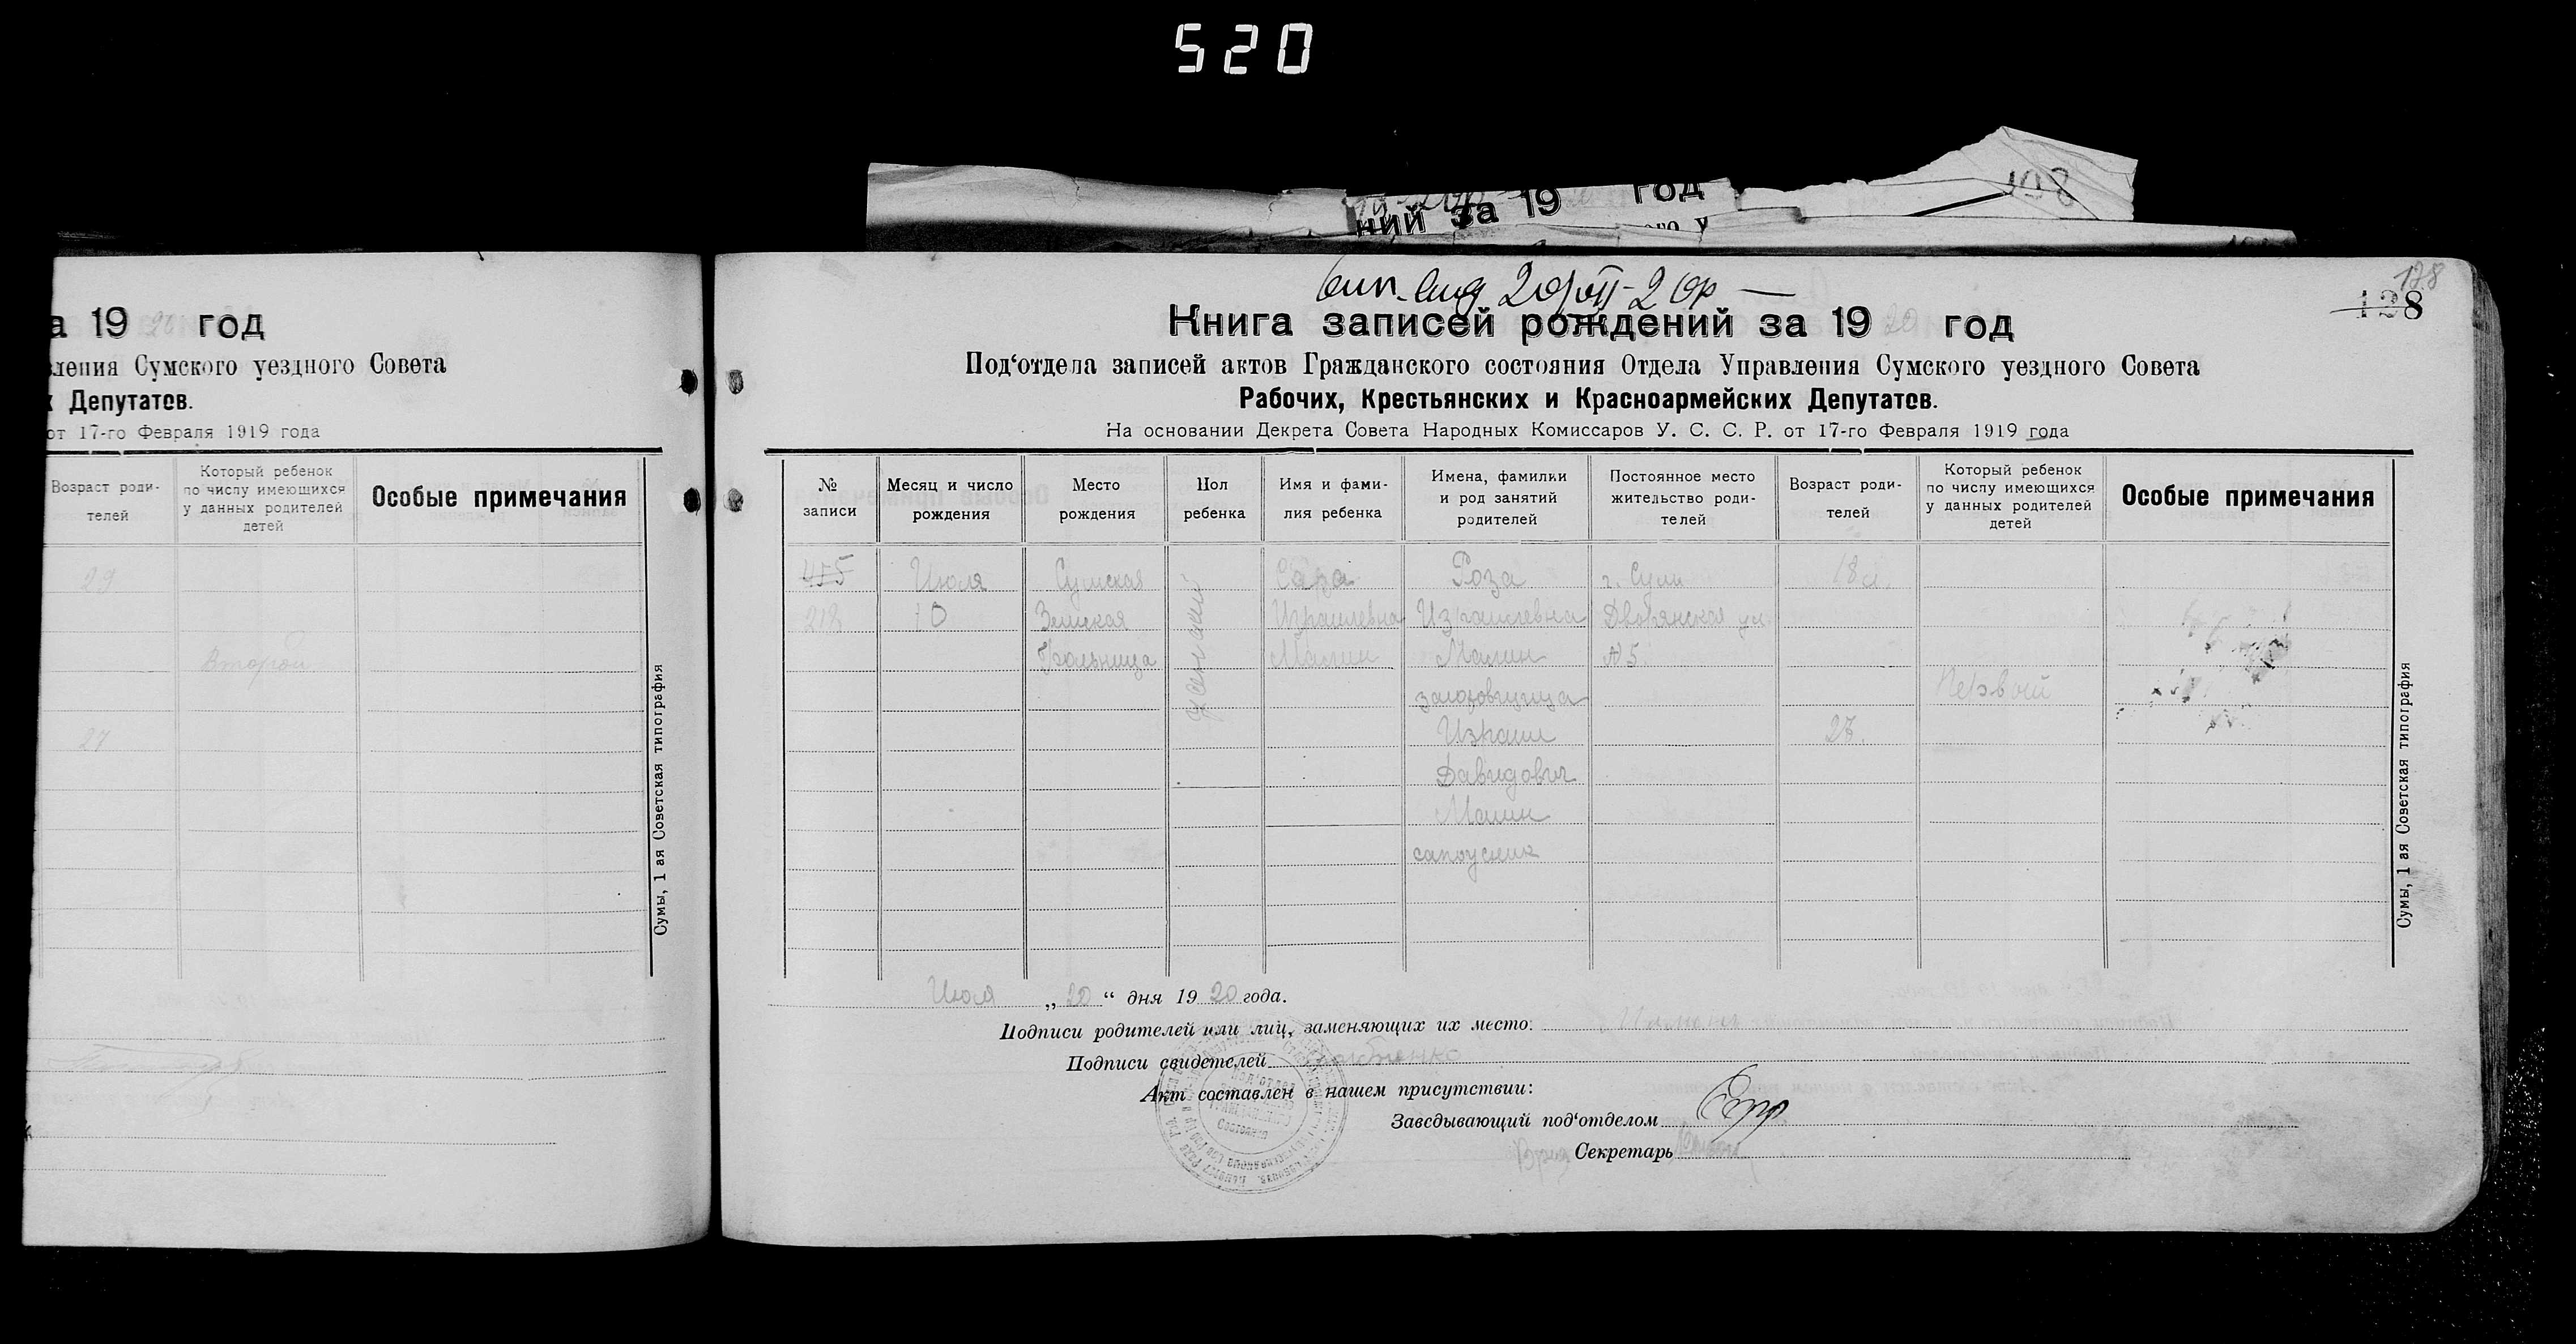 520
ний за 19 год
108
а 19 20 год
вления Сумского уездного Совета
х Депутатов.
от 17-го Февраля 1919 года
Возраст роди-
телей
Который ребенок
по числу имеющихся
у данных родителей
детей
Особые примечания
29
Второй
27
Сумы, 1 ая Советская типография
128
128
Книга записей рождений за 19 20 год
Под‘отдела записей актов Гражданского состояния Отдела Управления Сумского уездного Совета
Рабочих, Крестьянских и Красноармейских Депутатов.
На основании Декрета Совета Народных Комиссаров У. С. С. Р. от 17-го Февраля 1919 года
№
записи
Месяц и число
рождения
Место
рождения
Пол
ребенка
Имя и фами-
лия ребенка
Имена, фамилии
и род занятий
родителей
Постоянное место
жительство роди-
телей
Возраст роди-
телей
Который ребенок
по числу имеющихся
у данных родителей
детей
Особые примечания
455
218
Июля
10
Сумская
Земская
Больница
женский
Сара
Израилевна
Малин
Роза
Израилевна
Малин
заготовщица
Израил
Давидович
Малин
сапожник
г. Сумы
Дворянская ул.
№ 5.
18 л.
28.
Первый
Сумы, 1 ая Советская типография
Июля „ 20 “ дня 19 20 года.
Подписи родителей или лиц, заменяющих их место:
Подписи свидетелей
Акт составлен в нашем присутствии:
Заведывающий под‘отделом
Секретарь